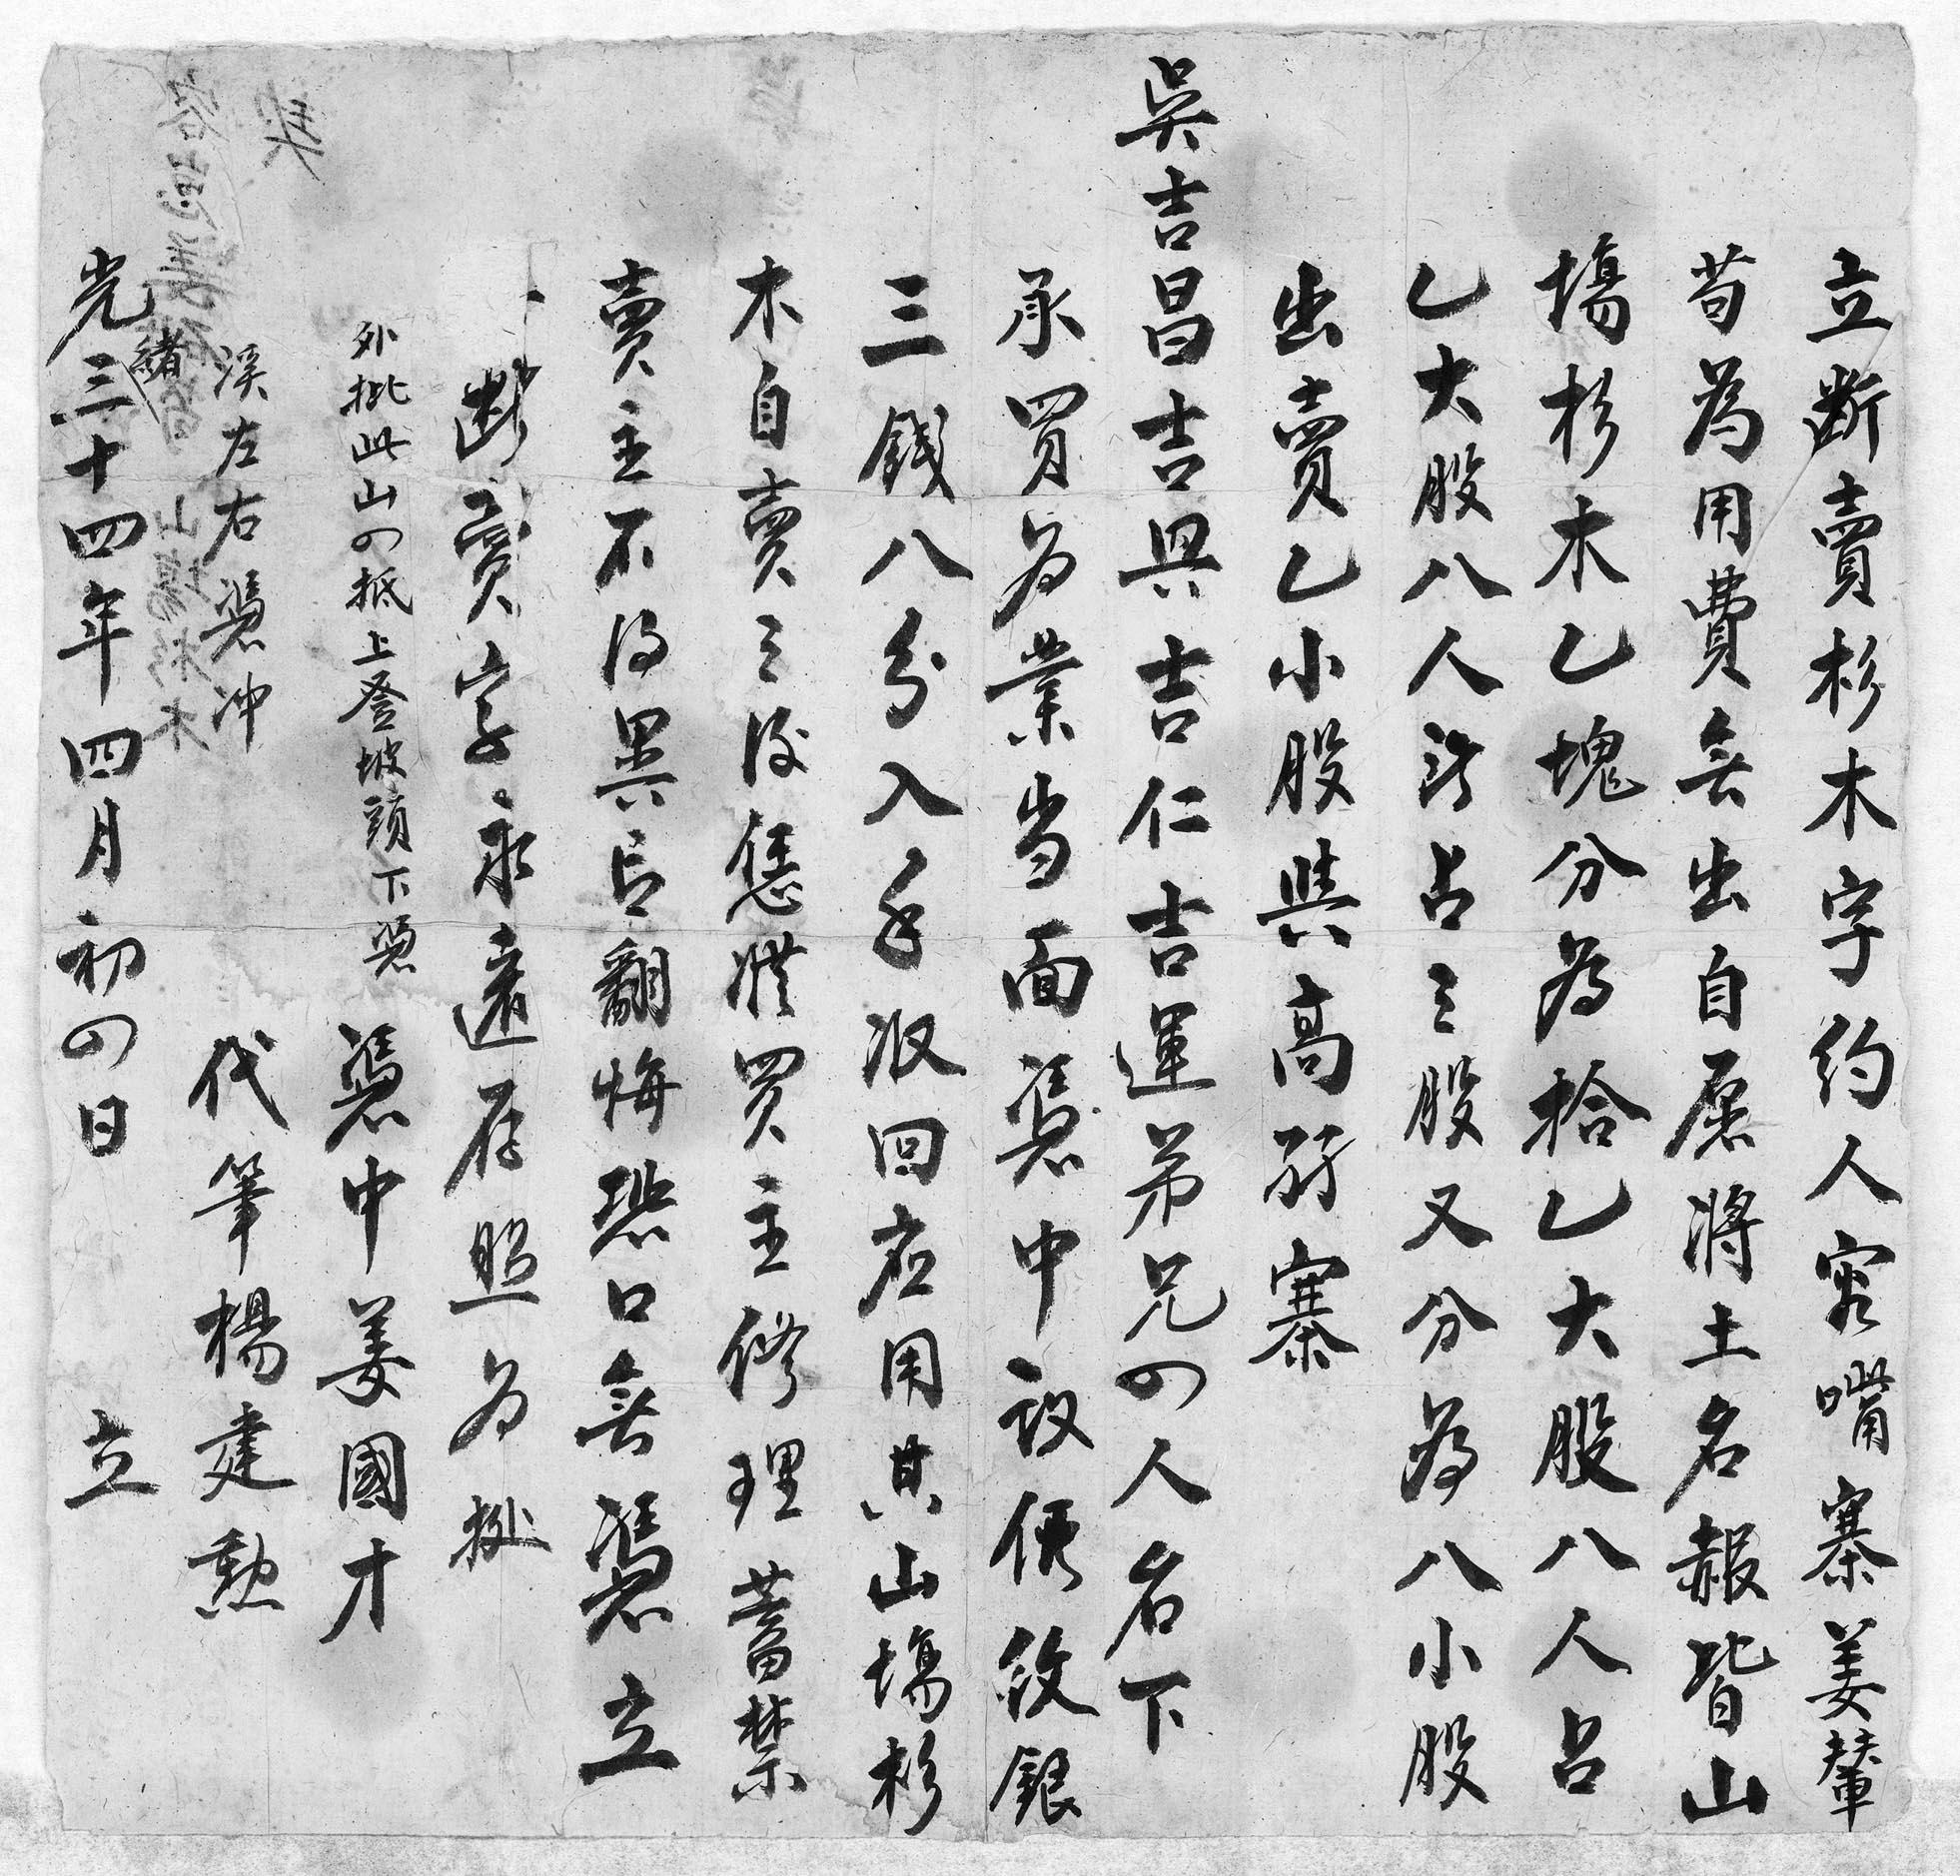 立斷賣杉木字約人容嘴寨姜輦
苟為用費無出自愿將土名報皆山
塲杉木乙塊分為拾乙大股八人占
乙大股八人占三股又分為八小股
出賣乙小股與高弱寨
吳吉昌吉興吉仁吉運弟兄四人名下
承買為業当面憑中議價紋銀
三錢八分入手收回应用其山塲杉
木自賣之後恁憑買主修理蓄禁
賣主不得異言翻悔恐口無憑立
斷賣字永遠存照為据
外批此山四抵上登坡頭下憑
溪左右憑冲
憑中姜國才
代筆楊建勲
光緒三十四年四月初四日 立